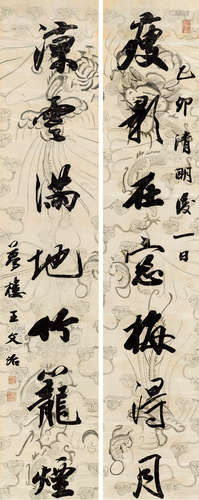 瘦影在窓梅得月
乙卯清明後一日
涼雲滿地竹籠煙
夢樓王文治